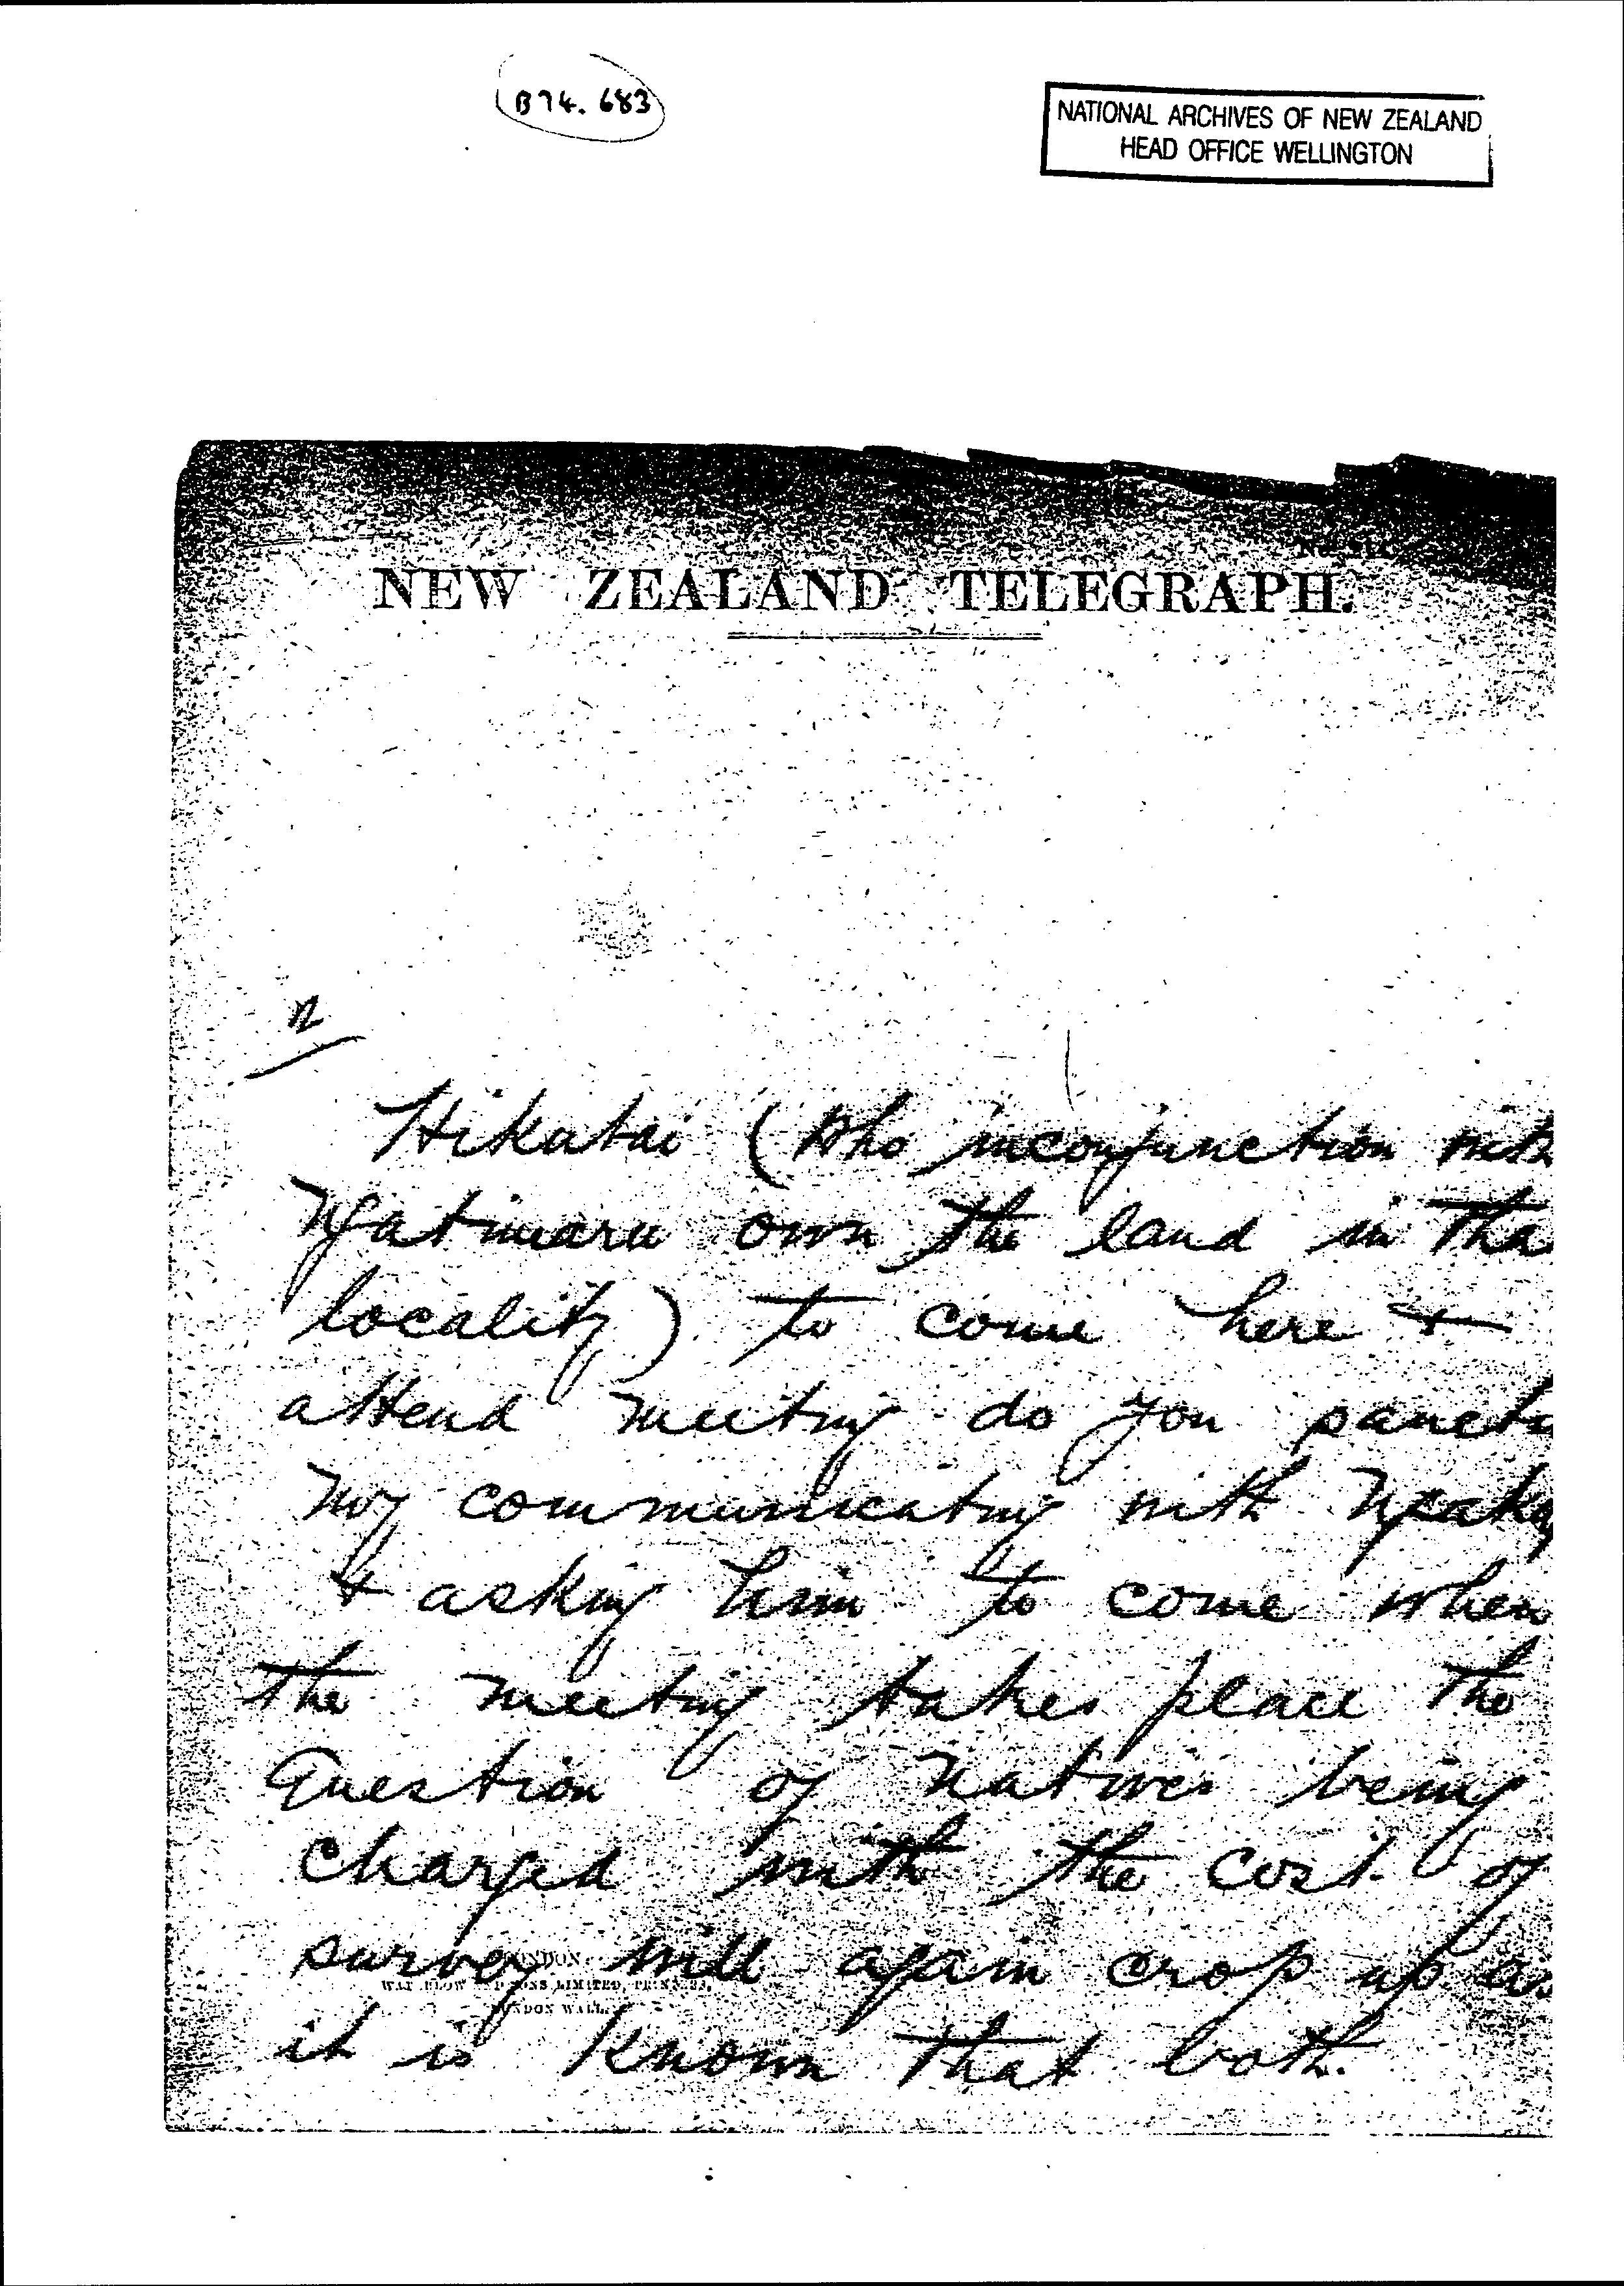 B74. 683
NATIONAL ARCHIVES OF NEW ZEALAND
HEAD OFFICE WELLINGTON
NEW ZEALAND TELEGRAPH.
Hikatai (who inconjunction with
Ngatimaru own the land in tha
locality) to come here &
attend meeting do you sanct
my communicating with Ngaka
& asking him to come when
the meeting takes place the
Question of natives being
charged with the cost of
survey will again crop up as
LONDON
LIMITED,
LONDON WALL
it is known that both